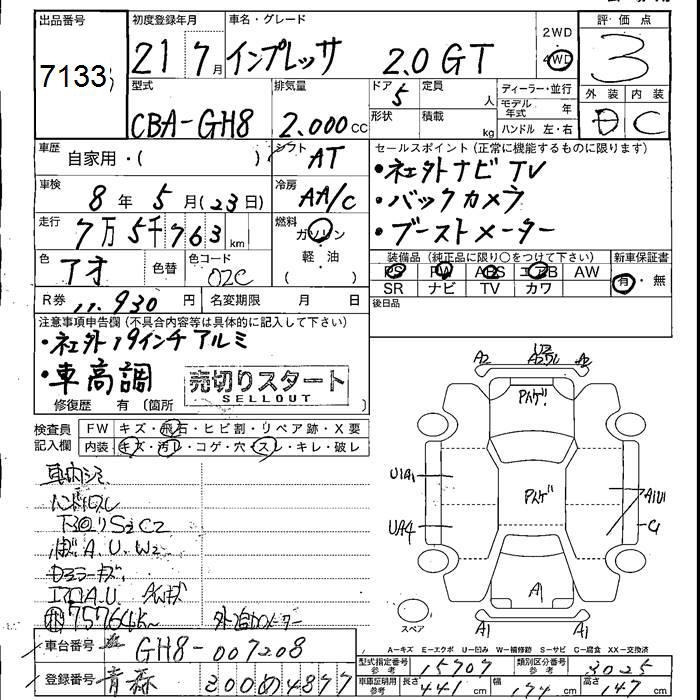 出品番号 初度登録年月 車名・グレード 2WD 評価点
7133 21 7月 インプレッサ 2.0GT 4WD 3
型式 排気量 ドア 5 定員 人 ディーラー・並行 外装 内装
CBA-GH8 2.000cc 形状 積載 kg モデル年式 年 D C
ハンドル 左・右
車歴 自家用・( ) シフト AT セールスポイント (正常に機能するものに限ります)
・社外ナビTV
車検 8年 5月(23日) 冷房 AA/C ・バックカメラ
走行 7万5千763km 燃料 ガソリン ・ブーストメーター
軽・油 装備品 (純正品に限り○をつけて下さい) 新車保証書
色 アオ 色替 色コード 02C ( ) PS PW ABS エアB AW 有・無
SR ナビ TV カワ
R券 11.930円 名変期限 月 日 後日品
注意事項申告欄 (不具合内容等は具体的に記入して下さい)
・社外19インチアルミ
・車高調 売切りスタート
SELLOUT
修復歴 有 (箇所
検査員 FW キズ・飛石・ヒビ割・リペア跡・X要
記入欄 内装 キズ・汚レ・コゲ・穴・スレ・キレ・破レ
ハンドルスレ
A.U.W2
A.U. AWキズ
75764km 外 追加メーター
A2 A2 Pハゲ
U1A1 Pハゲ A1U1
UA4 C1
A1
スペア A1 A1
車台番号 GH8-007208
A-キズ E-エクボ U-凹み W-補修跡 S-サビ C-腐食 XX-交換済
型式指定番号 参考 15707 類別区分番号 参考 3025
登録番号 青森 300 め 4877
車庫証明用 参考 長さ 441cm 幅 174cm 高さ 147cm